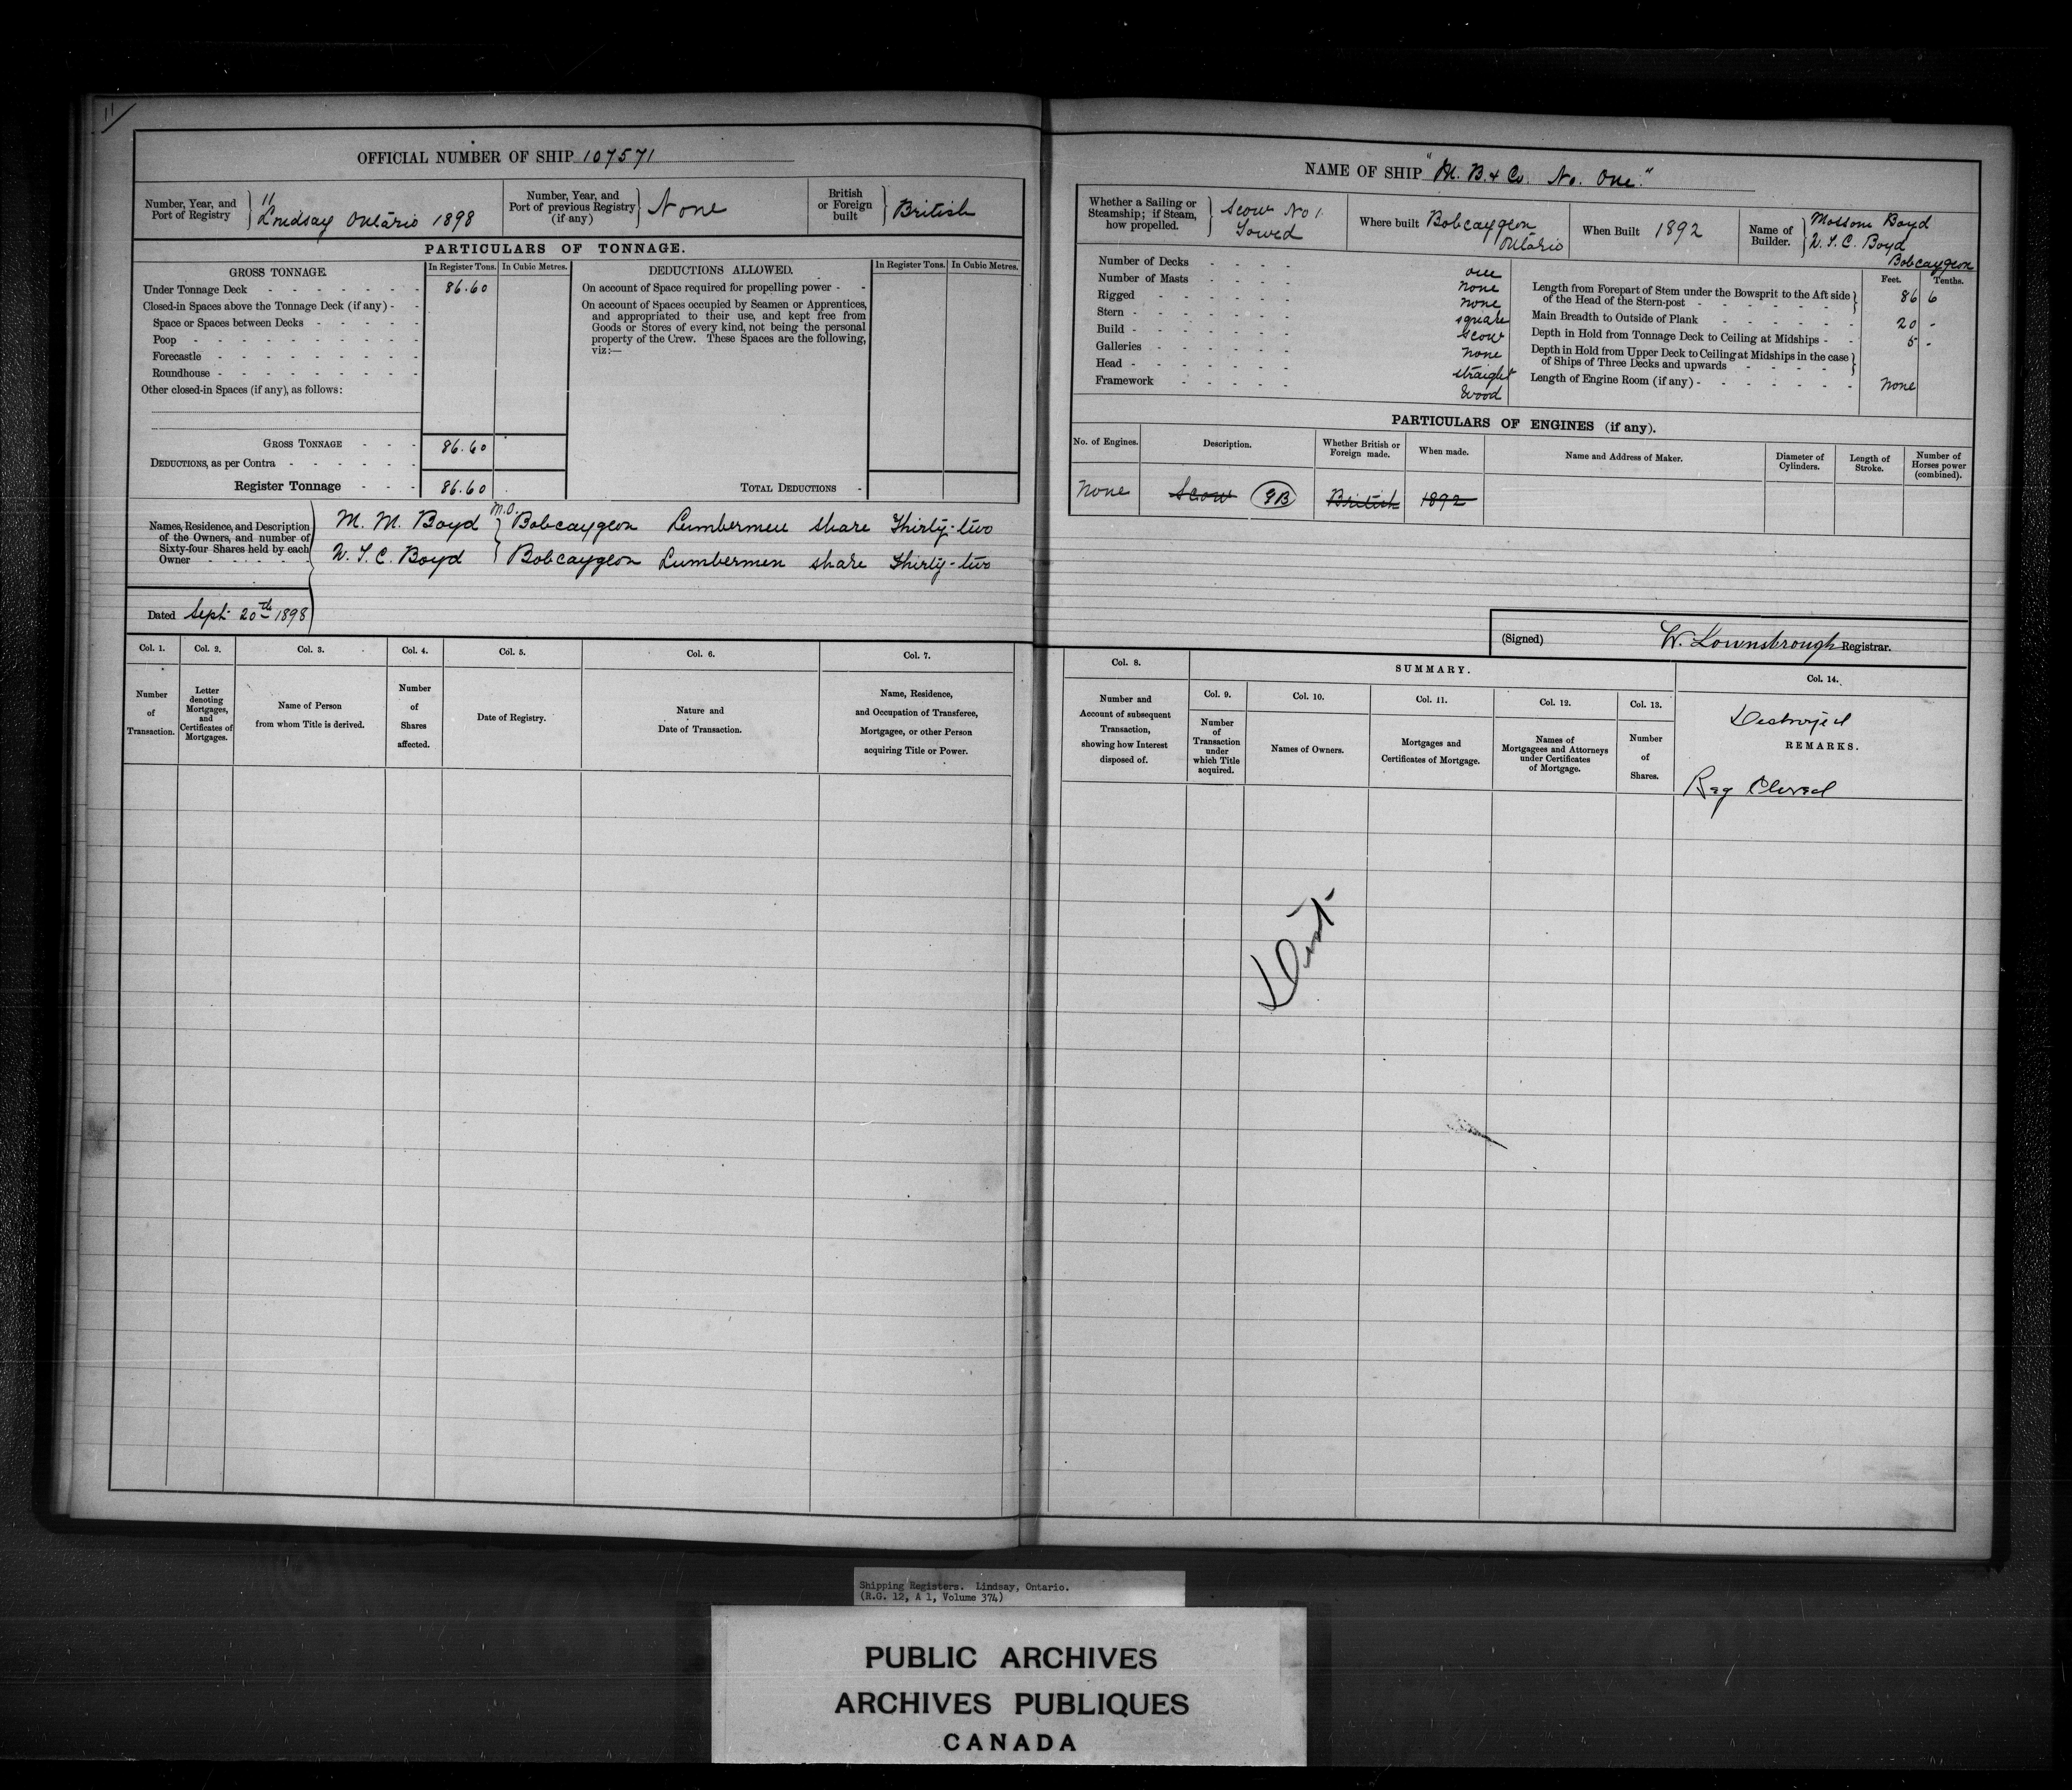 11
OFFICIAL NUMBER OF SHIP 107571
Number, Year, and Port of Registry
11
Lindsay Ontario 1898
Number, Year, and Port of previous Registry (if any)
None
British or Foreign built
British
PARTICULARS OF TONNAGE.
GROSS TONNAGE.
In Register Tons.
In Cubic Metres.
DEDUCTIONS ALLOWED.
In Register Tons.
In Cubic Metres.
Under Tonnage Deck 86.60
Closed-in Spaces above the Tonnage Deck (if any)
Space or Spaces between Decks
Poop
Forecastle
Roundhouse
Other closed-in Spaces (if any), as follows:
On account of Space required for propelling power
On account of Spaces occupied by Seamen or Apprentices,
and appropriated to their use, and kept free from
Goods or Stores of every kind, not being the personal
property of the Crew. These Spaces are the following,
viz:—
GROSS TONNAGE 86.60
DEDUCTIONS, as per Contra
Register Tonnage 86.60
TOTAL DEDUCTIONS
Names, Residence, and Description
of the Owners, and number of
Sixty-four Shares held by each
Owner
M.O.
M. M. Boyd Bobcaygeon Lumbermen share Thirty-two
W. T. C. Boyd Bobcaygeon Lumbermen share Thirty-two
Dated Sept 20th 1898
Col. 1.
Number of Transaction.
Col. 2.
Letter denoting Mortgages, and Certificates of Mortgages.
Col. 3.
Name of Person from whom Title is derived.
Col. 4.
Number of Shares affected.
Col. 5.
Date of Registry.
Col. 6.
Nature and Date of Transaction.
Col. 7.
Name, Residence, and Occupation of Transferee, Mortgagee, or other Person acquiring Title or Power.
NAME OF SHIP "M. B. & Co. No. One."
Whether a Sailing or Steamship; if Steam, how propelled.
Scow No 1.
Towed
Where built Bobcaygeon
Ontario
When Built 1892
Name of Builder.
Mossom Boyd
W. T. C. Boyd
Bobcaygeon
Number of Decks one
Number of Masts None
Rigged None
Stern square
Build Scow
Galleries None
Head straight
Framework Wood
Feet.
Tenths.
Length from Forepart of Stem under the Bowsprit to the Aft side
of the Head of the Stern-post 86 6
Main Breadth to Outside of Plank 20 -
Depth in Hold from Tonnage Deck to Ceiling at Midships 5 -
Depth in Hold from Upper Deck to Ceiling at Midships in the case
of Ships of Three Decks and upwards
Length of Engine Room (if any) None
PARTICULARS OF ENGINES (if any).
No. of Engines.
Description.
Whether British or Foreign made.
When made.
Name and Address of Maker.
Diameter of Cylinders.
Length of Stroke.
Number of Horses power (combined).
None Scow British 1892
(Signed) W. Lownsbrough Registrar.
Col. 8.
Number and Account of subsequent Transaction, showing how Interest disposed of.
SUMMARY.
Col. 9.
Number of Transaction under which Title acquired.
Col. 10.
Names of Owners.
Col. 11.
Mortgages and Certificates of Mortgage.
Col. 12.
Names of Mortgagees and Attorneys under Certificates of Mortgage.
Col. 13.
Number of Shares.
Col. 14.
Destroyed
REMARKS.
Reg Closed
Shipping Registers. Lindsay, Ontario.
(R.G. 12, A 1, Volume 374)
PUBLIC ARCHIVES
ARCHIVES PUBLIQUES
CANADA